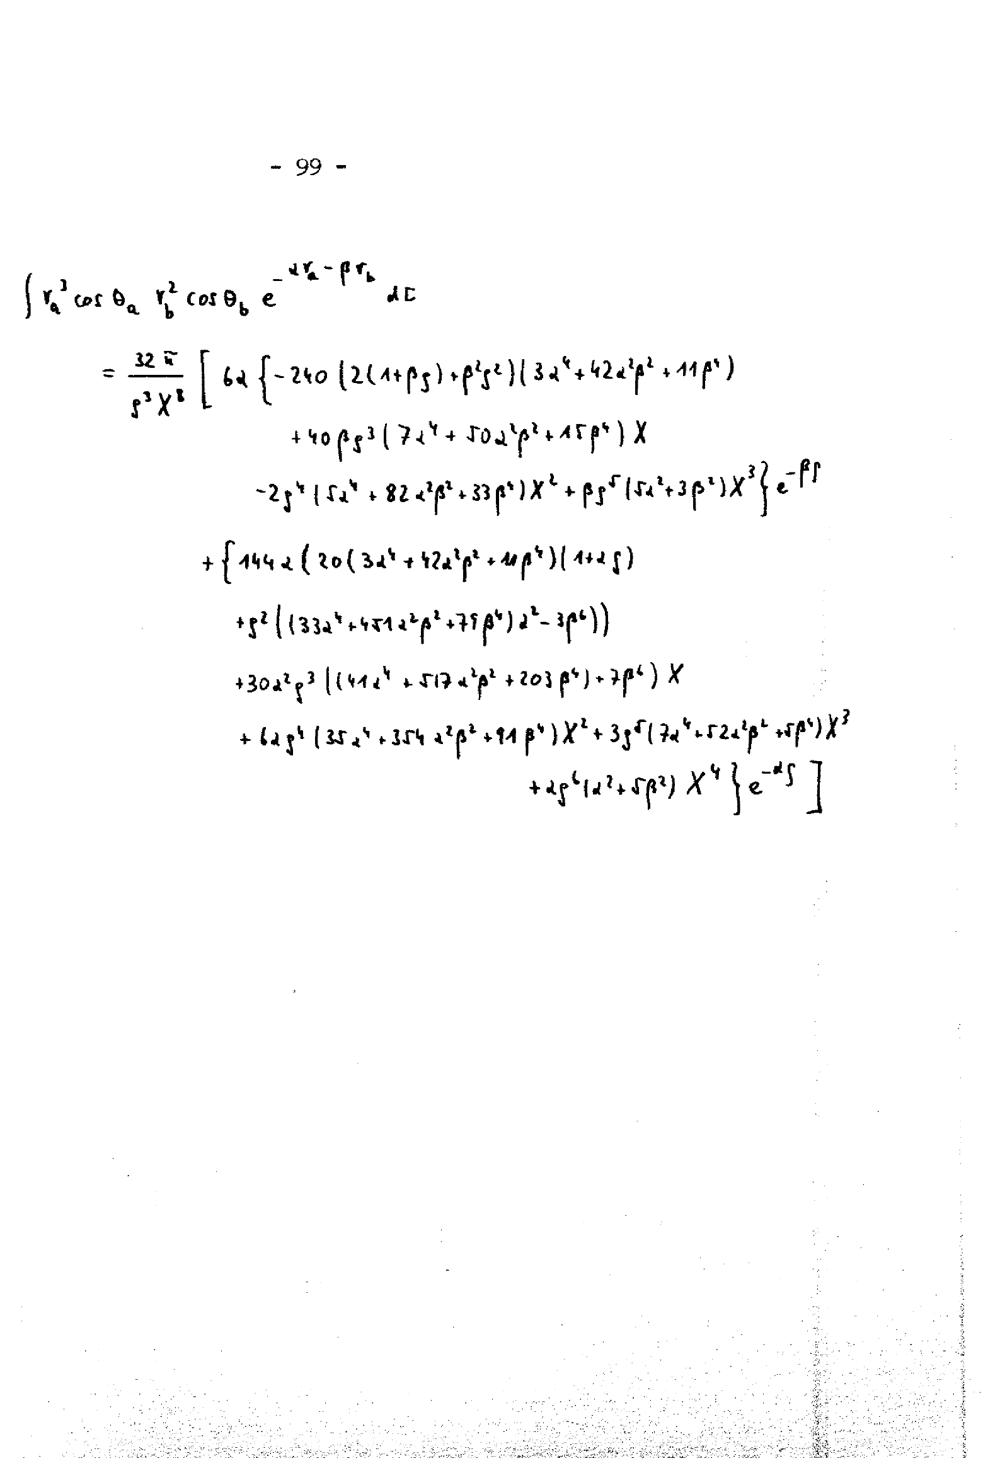 - 99 -
∫ r_a^3 cos θ_a r_b^2 cos θ_b e^{-αr_a - βr_b} dτ
= \frac{32 π}{ρ^3 X^8} [ 6α { -240 (2(1+βρ)+β^2ρ^2)(3α^4+42α^2β^2+11β^4)
+40βρ^3(7α^4+50α^2β^2+15β^4) X
-2ρ^4(5α^4+82α^2β^2+33β^4)X^2+βρ^5(5α^2+3β^2)X^3} e^{-βρ}
+{144α(20(3α^4+42α^2β^2+11β^4)(1+αρ)
+ρ^2((33α^4+451α^2β^2+79β^4)α^2-3β^6))
+30α^2ρ^3((41α^4+517α^2β^2+203β^4)+7β^6) X
+6αρ^4(35α^4+354α^2β^2+91β^4)X^2+3ρ^5(7α^4+52α^2β^2+5β^4)X^3
+αρ^6(α^2+5β^2) X^4} e^{-αρ} ]